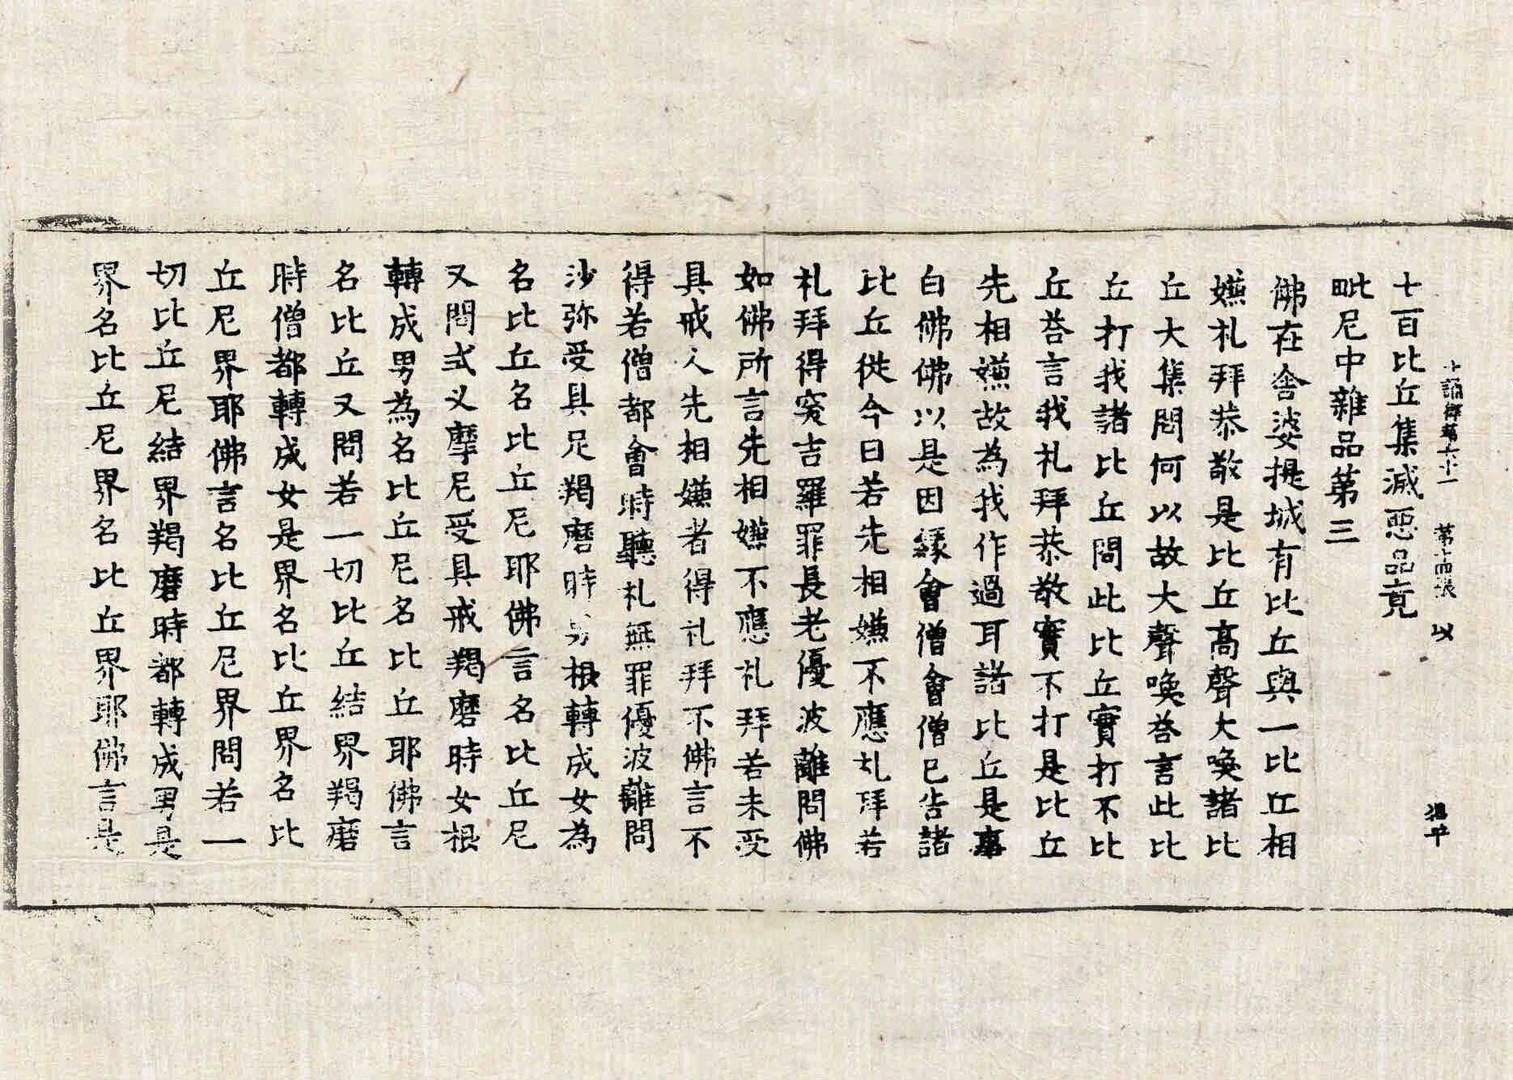 十誦律第六十一 第十四張 以
七百比丘集滅惡品竟
毗尼中雜品第三
佛在舍婆提城有比丘與一比丘相
嫌礼拜恭敬是比丘高聲大喚諸比
丘大集問何以故大聲喚荅言此比
丘打我諸比丘問此比丘實打不比
丘荅言我礼拜恭敬實不打是比丘
先相嫌故為我作過耳諸比丘是事
白佛佛以是因緣會僧會僧已告諸
比丘從今日若先相嫌不應礼拜若
礼拜得突吉羅罪長老優波離問佛
如佛所言先相嫌不應礼拜若未受
具戒人先相嫌者得礼拜不佛言不
得若僧都會時聽礼無罪優波離問
沙弥受具足羯磨時男根轉成女為
名比丘名比丘尼耶佛言名比丘尼
又問式叉摩尼受具戒羯磨時女根
轉成男為名比丘尼名比丘耶佛言
名比丘又問若一切比丘結界羯磨
時僧都轉成女是界名比丘界名比
丘尼界耶佛言名比丘尼界問若一
切比丘尼結界羯磨時都轉成男是
界名比丘尼界名比丘界耶佛言是